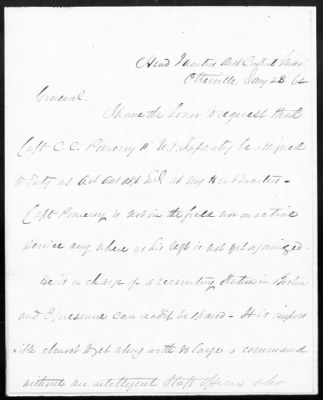 Head Quarters Dist Central Missouri
Otterville Jany 28 62
General.
I have the honor to request that
Capt C. C. Pomeroy 11" U.S. Infantry be assigned
to duty as Act Asst Adjt Genl at my Head Quarters -
Capt Pomeroy is not in the field nor in active
service any where as his Regt is not yet organized -
He is in charge of a recruiting Station in Boston
and I presume can easily be spared - It is imposs
ible almost to get along with so large a command
without an intelligent Staff Officer who